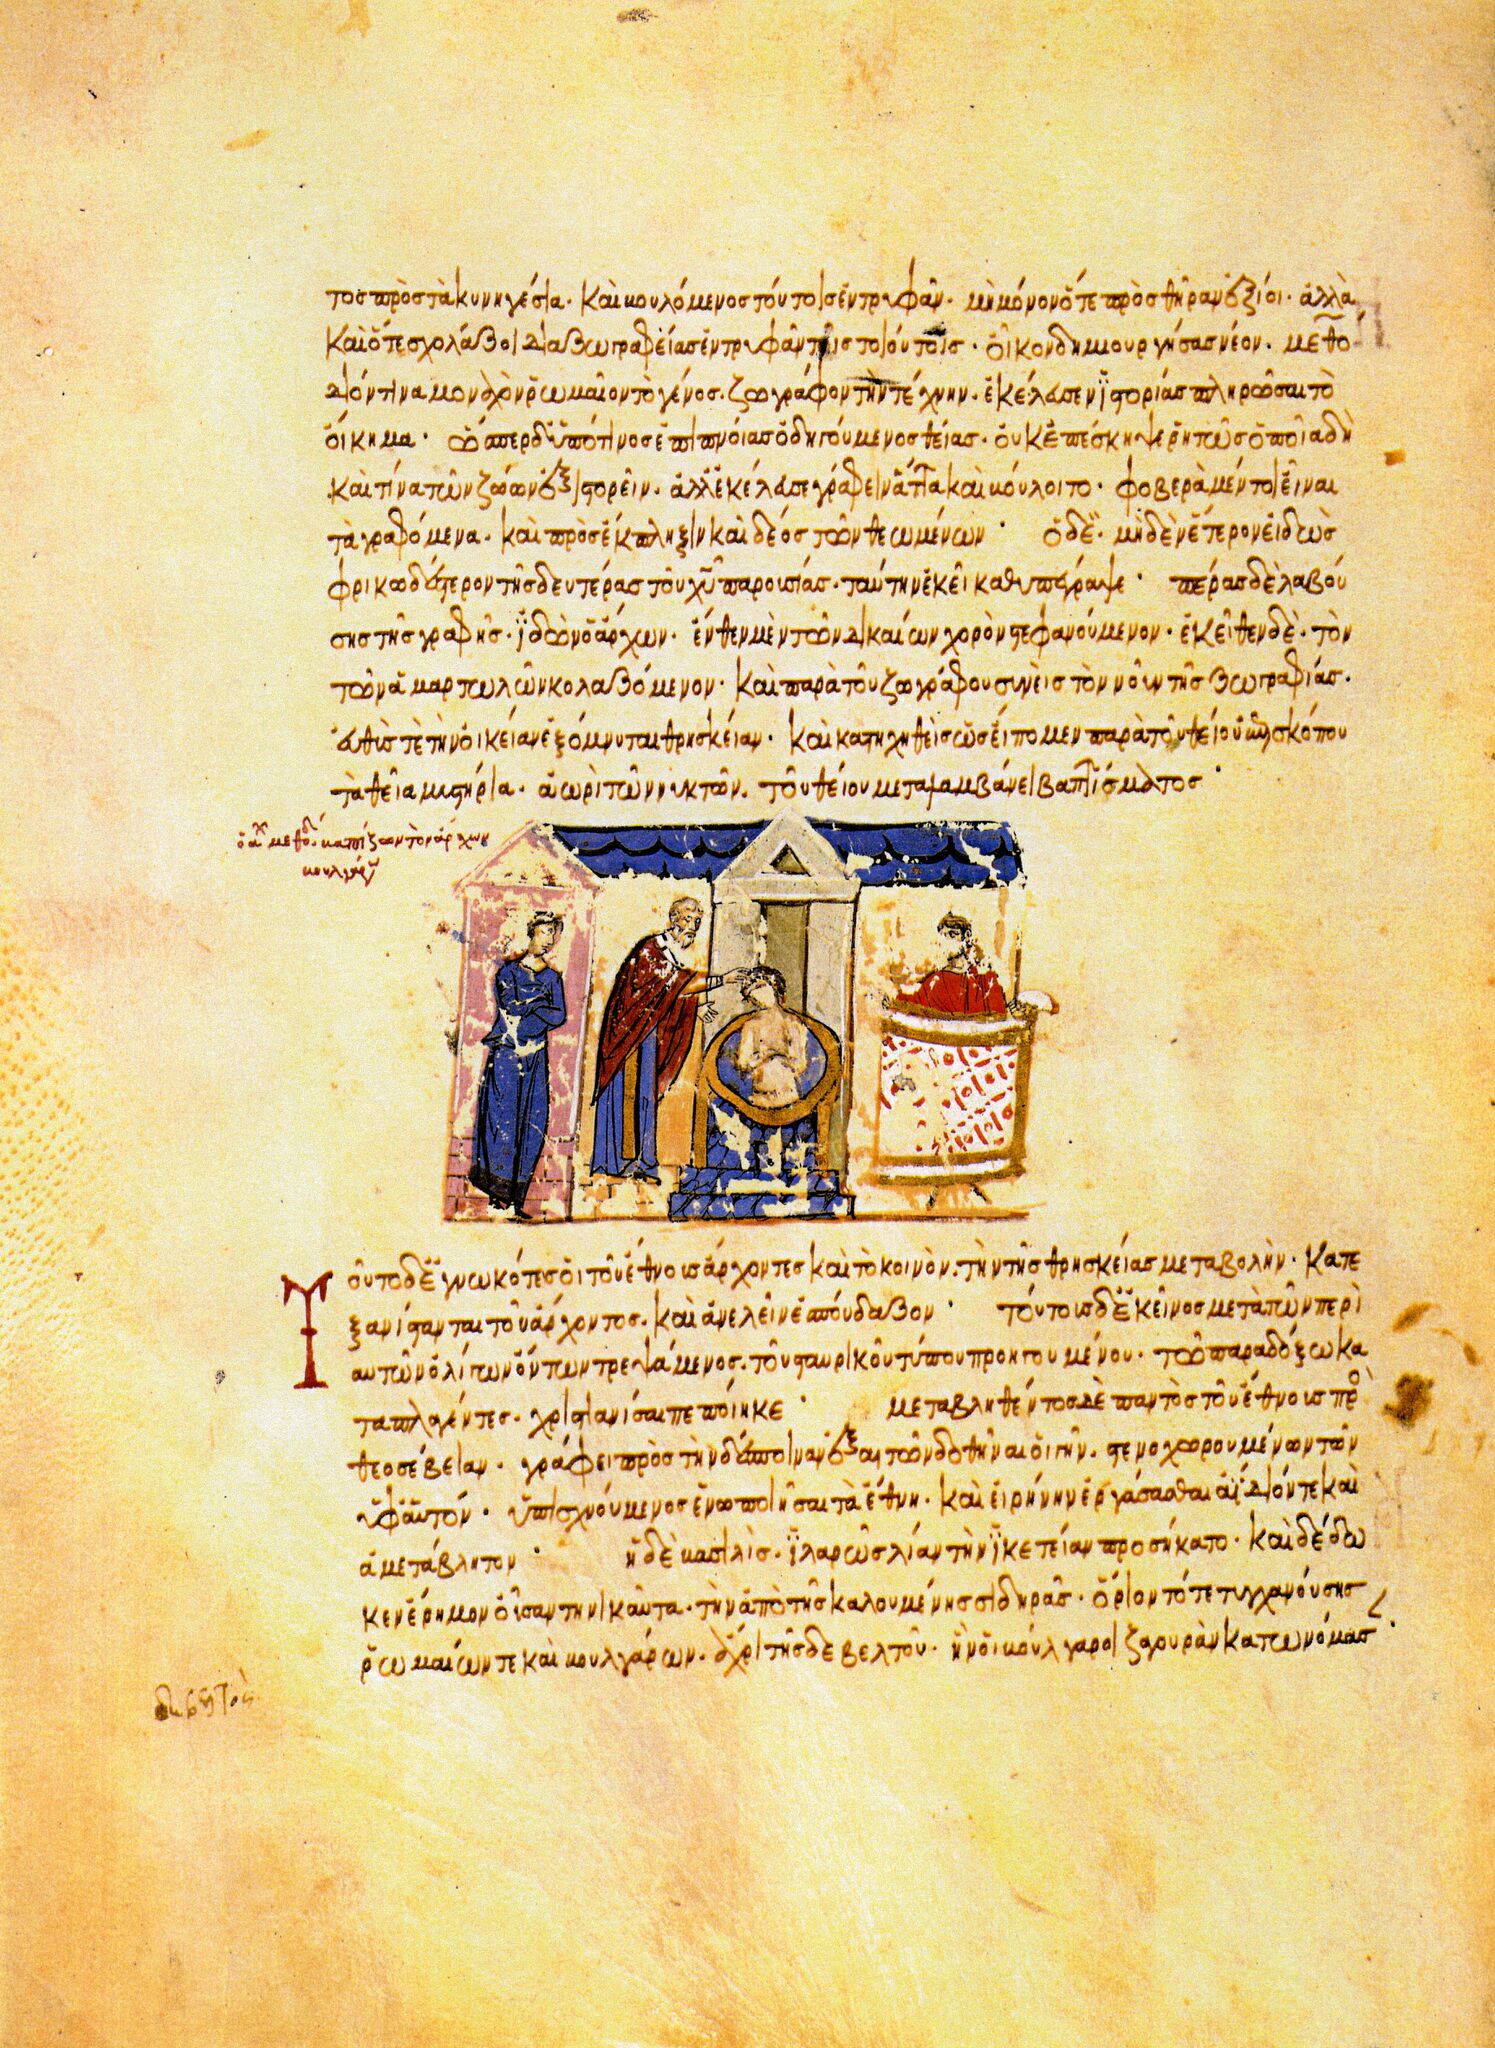 τος πρὸς τὰ κυνηγέσια· καὶ βουλόμενος τούτοις ἐντρυφᾶν· μὴ μόνον ὅτε πρὸς θήραν ἐξίοι· ἀλλὰ
καὶ ὅτε σχολάζοι διὰ ζωγραφείας ἐντρυφᾶν τοῖς τοιούτοις· οἶκον δημιουργήσας νέον· μεθό
διόν τινα μοναχὸν ῥωμαῖον τὸ γένος· ζωγράφον τὴν τέχνην· ἐκέλευσεν ἱστορίας πληρῶσαι τὸ
οἴκημα· ὑπό τινος ἐπιπνοίας ὁδηγούμενος θείας· οὐκ ἐπέσκηψε ῥητῶς ὁποῖα δὴ
καὶ τίνα τῶν ζώων ἱστορεῖν· ἀλλ' ἐκέλευσε γράφειν ἅττα καὶ βούλοιτο· φοβερὰ μέντοι εἶναι
τὰ γραφόμενα· καὶ πρὸς ἔκπληξιν καὶ δέος τῶν θεωμένων· ὁ δὲ μηδὲν ἕτερον εἰδὼς
φρικωδέστερον τῆς δευτέρας τοῦ χῦ παρουσίας· ταύτην ἐκεῖ καθυπέγραψε· πέρας δὲ λαβού
σης τῆς γραφῆς· ἰδὼν ὁ ἄρχων· ἔνθεν μὲν τῶν δικαίων χορὸν στεφανούμενον· ἐκεῖθεν δὲ· τὸν
τῶν ἁμαρτωλῶν κολαζόμενον· καὶ παρὰ τοῦ ζωγράφου συνεὶς τὸν νοῦν τῆς ζωγραφίας·
αὖθίς τε τὴν οἰκείαν ἐξόμνυται θρησκείαν· καὶ κατηχηθεὶς ὡς εἴπομεν παρὰ τοῦ θείου ἐπισκόπου
τὰ θεῖα μυστήρια· ἀωρὶ τῶν νυκτῶν· τοῦ θείου μεταλαμβάνει βαπτίσματος·
μεθόδ βαπτίζων τὸν ἄρχων
βουλγάρ
Τοῦτο δὲ ἐγνωκότες οἱ τοῦ ἔθνους ἄρχοντες καὶ τὸ κοινὸν· τὴν τῆς θρησκείας μεταβολὴν· κατε
ξανίστανται τοῦ ἄρχοντος· καὶ ἀνελεῖν ἐσπούδαζον· τούτους δὲ ἐκεῖνος μετὰ τῶν περὶ
αὐτὸν ὀλίγων ὄντων τρεψάμενος· τοῦ σταυρικοῦ τύπου προηγουμένου· τῷ παραδόξω κα
ταπλαγέντες· χριστιανίσαι πεποίηκε· μεταβληθέντος δὲ παντὸς τοῦ ἔθνους πρὸ
θεοσέβειαν· γράφει πρὸς τὴν δέσποιναν δοθῆναι οἱ γῆν· στενοχωρουμένων τῶν
ὑφ' ἑαυτόν· ὑπισχνούμενος ἑνωποιῆσαι τὰ ἔθνη· καὶ εἰρήνην ἐργάσασθαι ἀΐδιόν τε καὶ
ἀμετάβλητον· ἡ δὲ βασιλὶς· ἱλαρῶς λίαν τὴν ἱκετείαν προσήκατο· καὶ δέδω
κεν ἔρημον οὖσαν τηνικαῦτα· τὴν ἀπὸ τῆς καλουμένης σιδηρᾶς· ὅριον τότε τυγχανούσης
ῥωμαίων τε καὶ βουλγάρων· ἄχρι τῆς δεβελτοῦ· ἣν οἱ βούλγαροι ζαγουρὰν κατωνόμασ